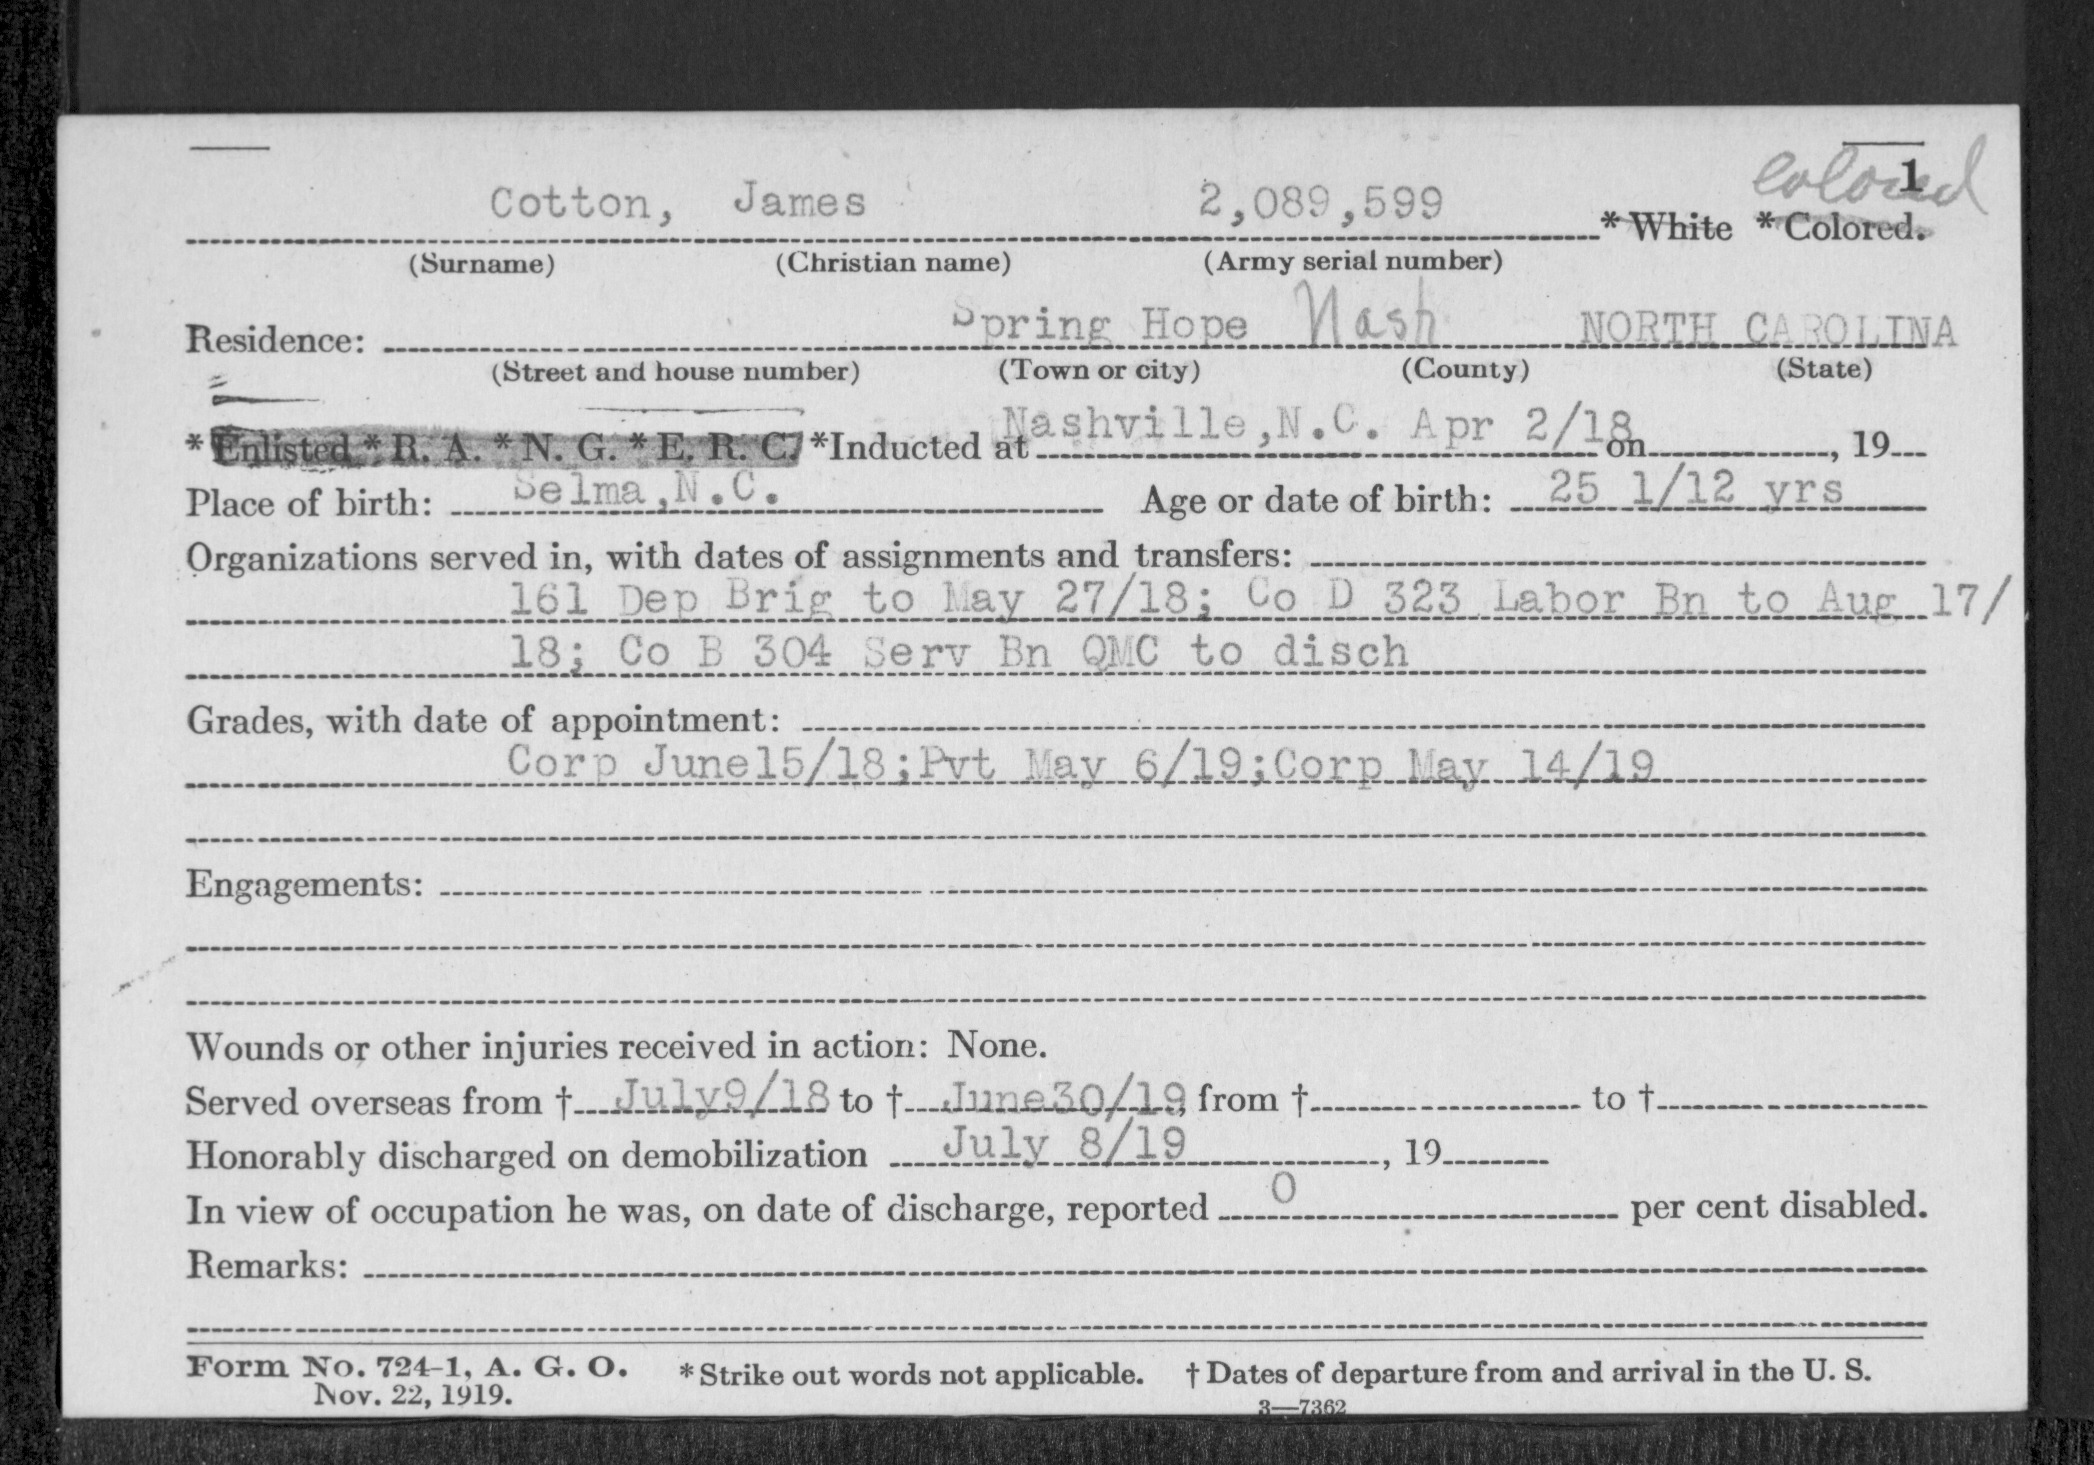 colored
1
Cotton, James 2,089,599 * White * Colored.
(Surname) (Christian name) (Army serial number)
Residence: Spring Hope Nash NORTH CAROLINA
(Street and house number) (Town or city) (County) (State)
* Enlisted * R. A. * N. G. * E. R. C. *Inducted at Nashville,N.C. Apr 2/18 on , 19
Place of birth: Selma,N.C. Age or date of birth: 25 1/12 yrs
Organizations served in, with dates of assignments and transfers:
161 Dep Brig to May 27/18; Co D 323 Labor Bn to Aug 17/
18; Co B 304 Serv Bn QMC to disch
Grades, with date of appointment:
Corp June15/18;Pvt May 6/19;Corp May 14/19
Engagements:
Wounds or other injuries received in action: None.
Served overseas from † July9/18 to † June30/19, from † to †
Honorably discharged on demobilization July 8/19 , 19
In view of occupation he was, on date of discharge, reported 0 per cent disabled.
Remarks:
Form No. 724-1, A. G. O. * Strike out words not applicable. † Dates of departure from and arrival in the U. S.
Nov. 22, 1919.
3—7362